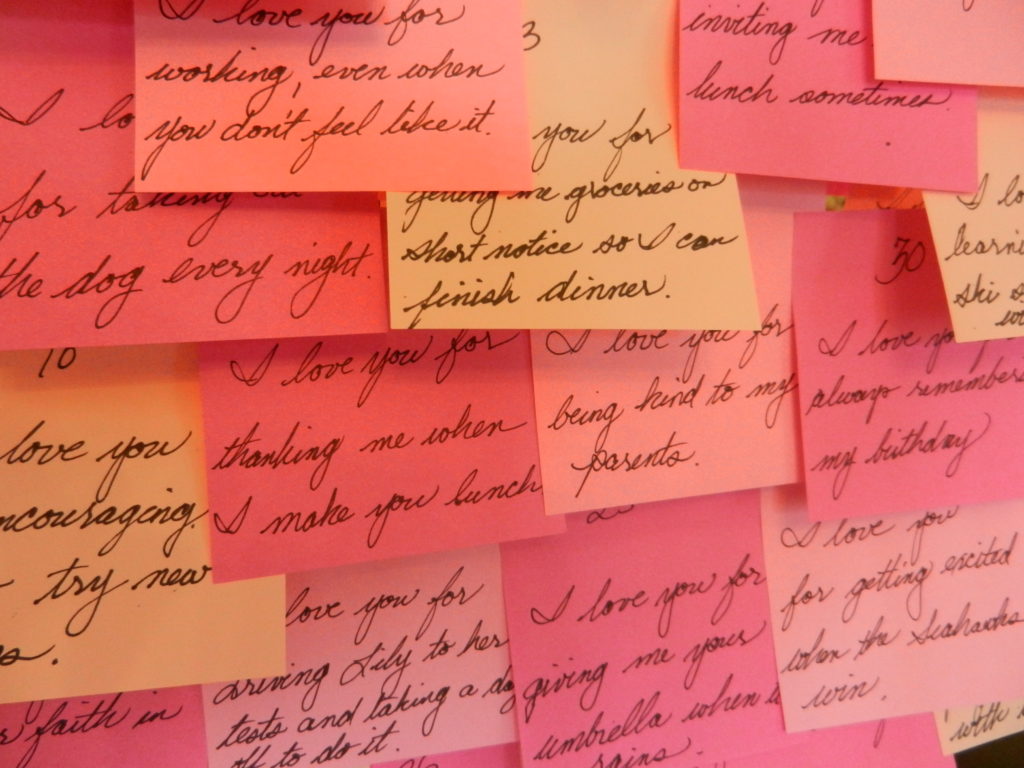 I love you for
working, even when
you don't feel like it.
3
you for
getting me groceries on
short notice so I can
finish dinner.
inviting me
lunch sometimes.
I lo
for taking
the dog every night.
I lo
learni
ski s
30
I love yo
always remembers
my birthday
10
love you
ncouraging
try new
s.
I love you for
thanking me when
I make you lunch
I love you for
being kind to my
parents.
I love you
for getting excited
when the Seahawks
win.
love you for
driving Lily to her
tests and taking a da
off to do it.
I love you for
giving me your
umbrella when i
rains.
faith in
with